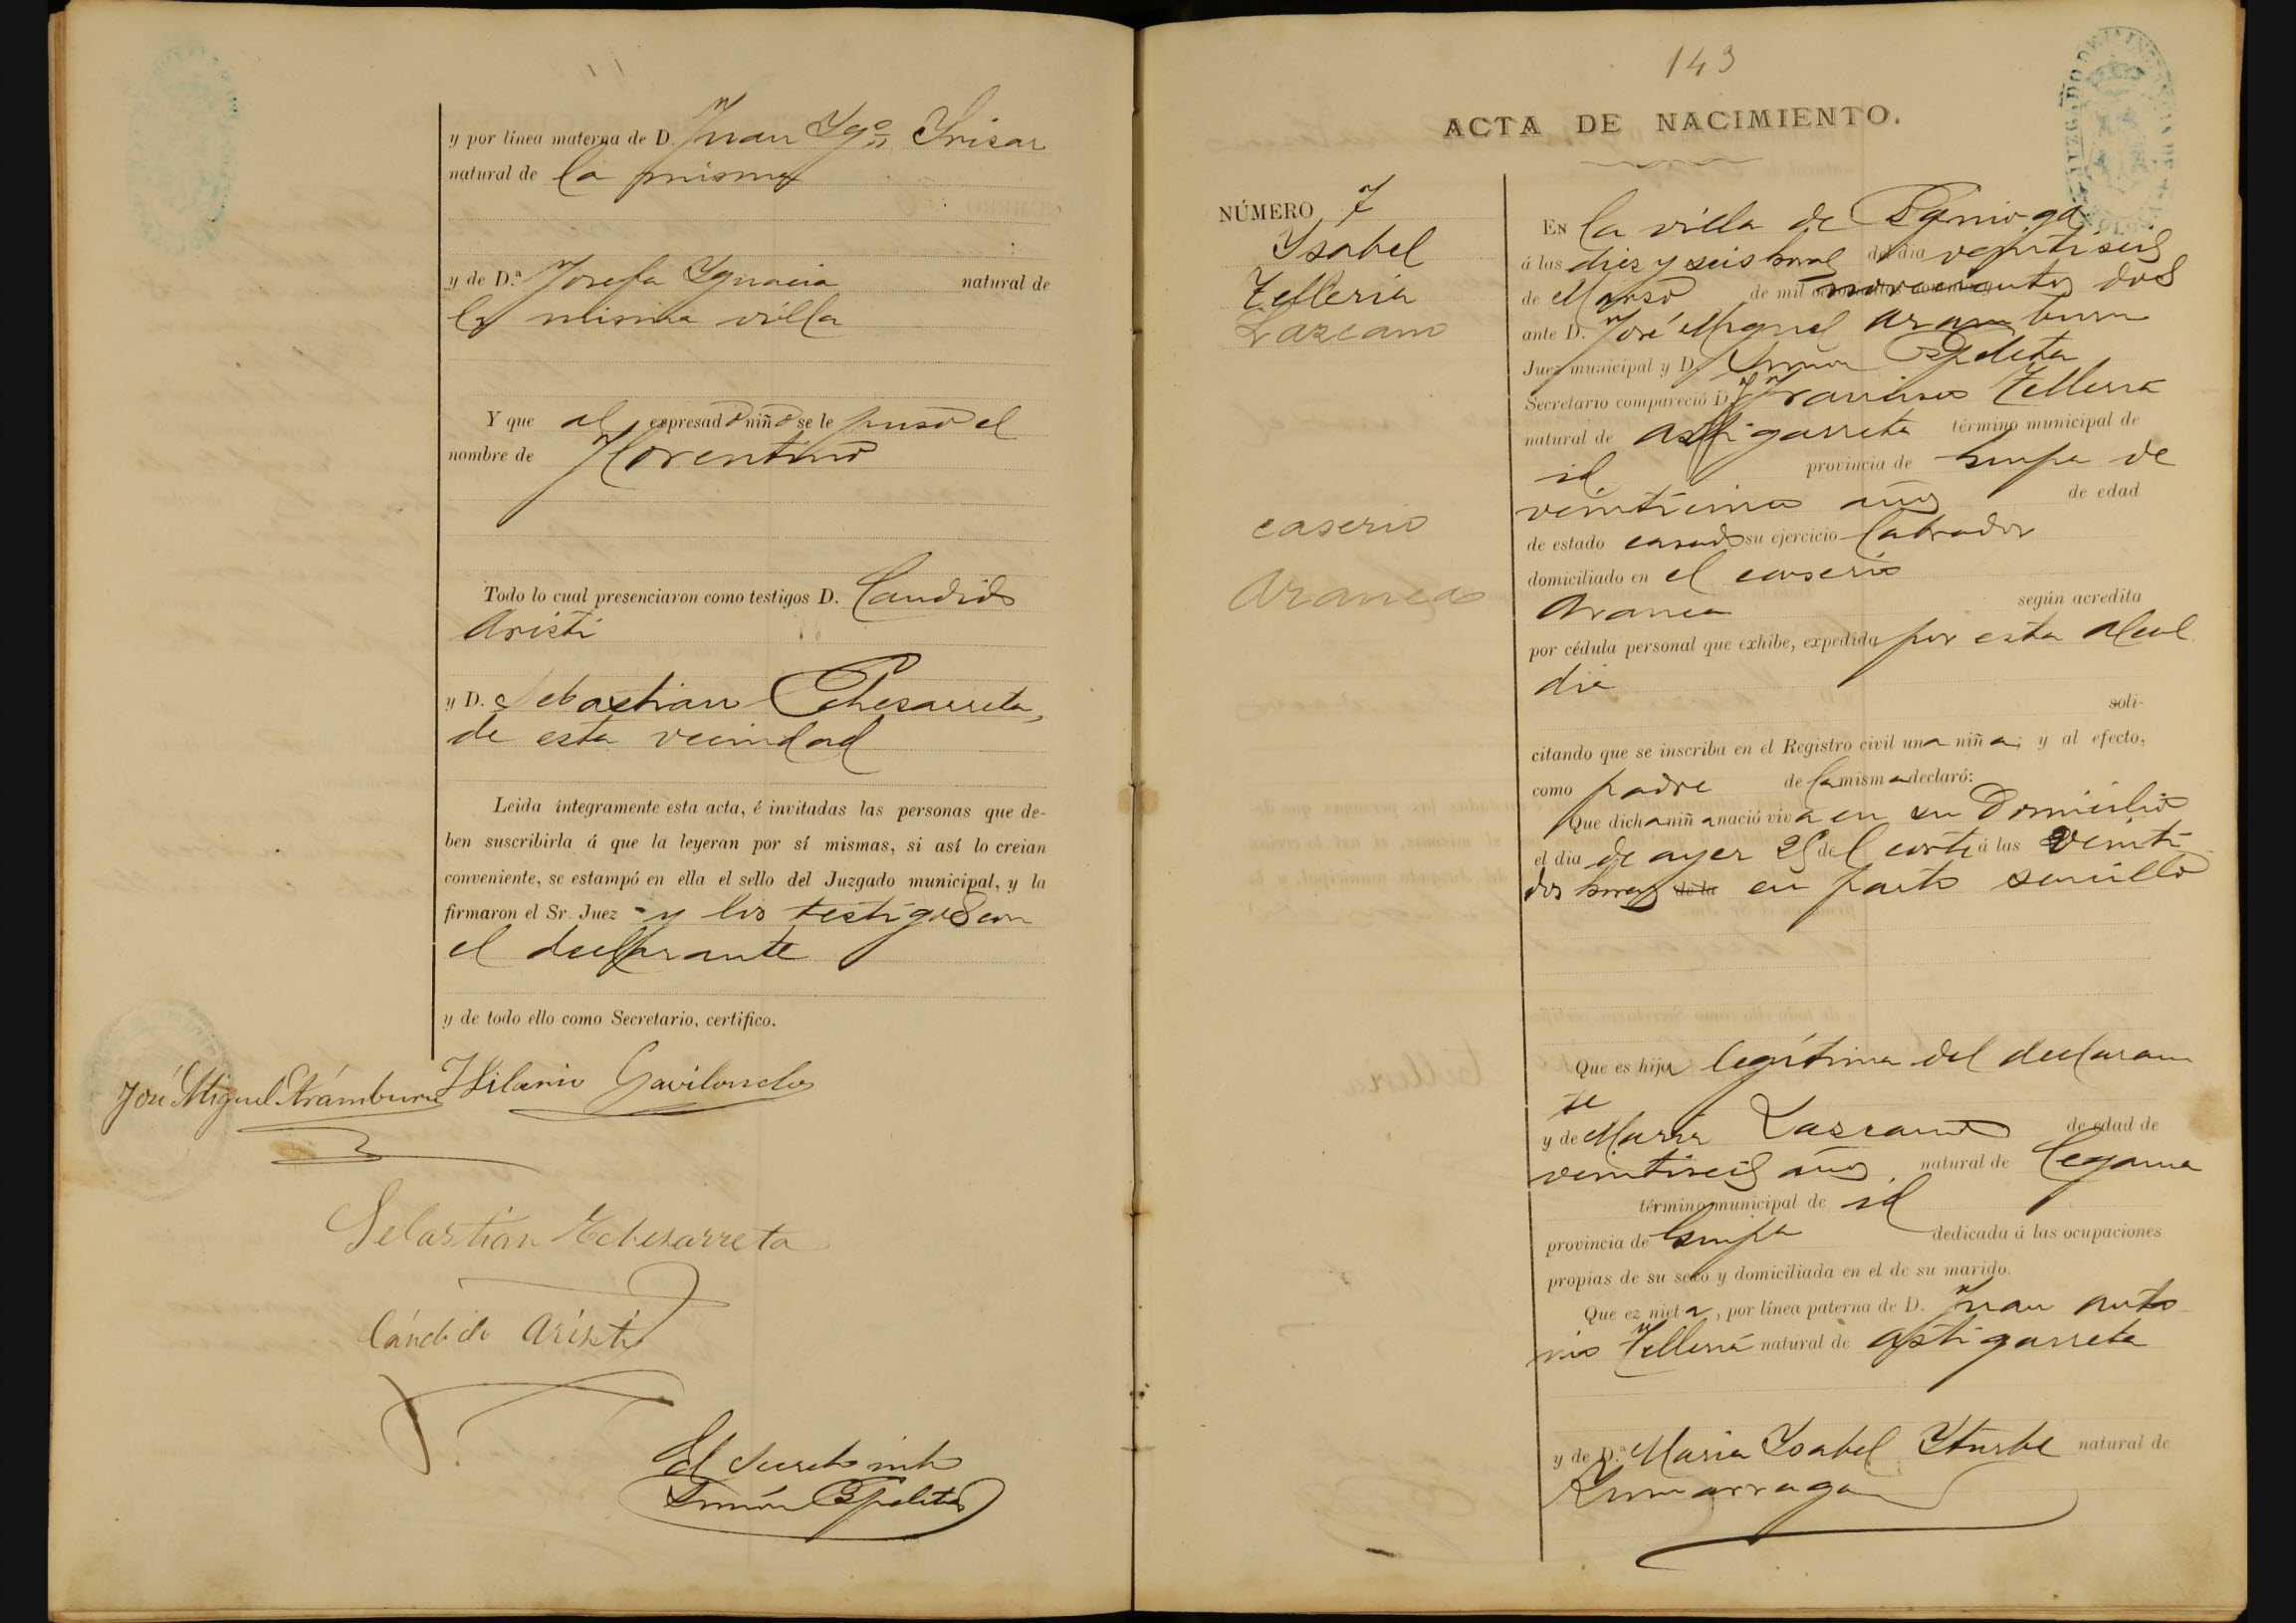 y por línea materna de D. Juan Ygº Irisar
natural de la misma
y de D.ª Josefa Ygnacia natural de
la misma villa
Y que al expresado niño se le puso el
nombre de Florentino
Todo lo cual presenciaron como testigos D. Candido
Aristi
y D. Sebastian Echezarreta,
de esta vecindad
Leida íntegramente esta acta, é invitadas las personas que de-
ben suscribirla á que la leyeran por sí mismas, si así lo creian
conveniente, se estampó en ella el sello del Juzgado municipal, y la
firmaron el Sr. Juez y los testigos con
el declarante
y de todo ello como Secretario, certifico.
José Miguel Arámburu Hilario Gavilondo
Sebastian Echezarreta
Cándido Aristi
El Secreto into
Simón
143
ACTA DE NACIMIENTO.
NÚMERO 7
Ysabel
Telleria
Lazcano
caserio
Aranea
EN la villa de
á las diez y seis horas del dia veintiseis
de Marzo de mil novecientos dos
ante D. José Miguel Aramburu
Juez municipal y D. Simon
Secretario compareció D. Francisco Telleria
natural de Astigarreta término municipal de
id provincia de Guipa de
veinticinco años de edad
de estado casado su ejercicio labrador
domiciliado en el caserio
Aranea según acredita
por cédula personal que exhibe, expedida por esta Alcal
dia
soli-
citando que se inscriba en el Registro civil una niña; y al efecto,
como padre de la misma declaró:
Que dicha niña nació viva en su Domicilio
el dia de ayer 25 del corte á las veinti
dos horas de la en parto sencillo
Que es hija legítima del declaran
te
y de Maria Lazcano de edad de
veintiseis años natural de Cegama
término municipal de id
provincia de Guipa dedicada á las ocupaciones
propias de su sexo y domiciliada en el de su marido.
Que ez nieta, por línea paterna de D. Juan Anto
nio Telleria natural de Astigarreta
y de D.ª Maria Ysabel Yturbe natural de
Zumarraga